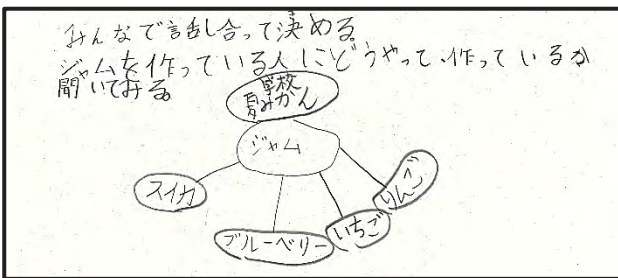 みんなで話し合って決める。
ジャムを作っている人にどうやって、作っているか
聞いてみる。
学校
夏みかん
ジャム
スイカ
ブルーベリー
いちご
りんご